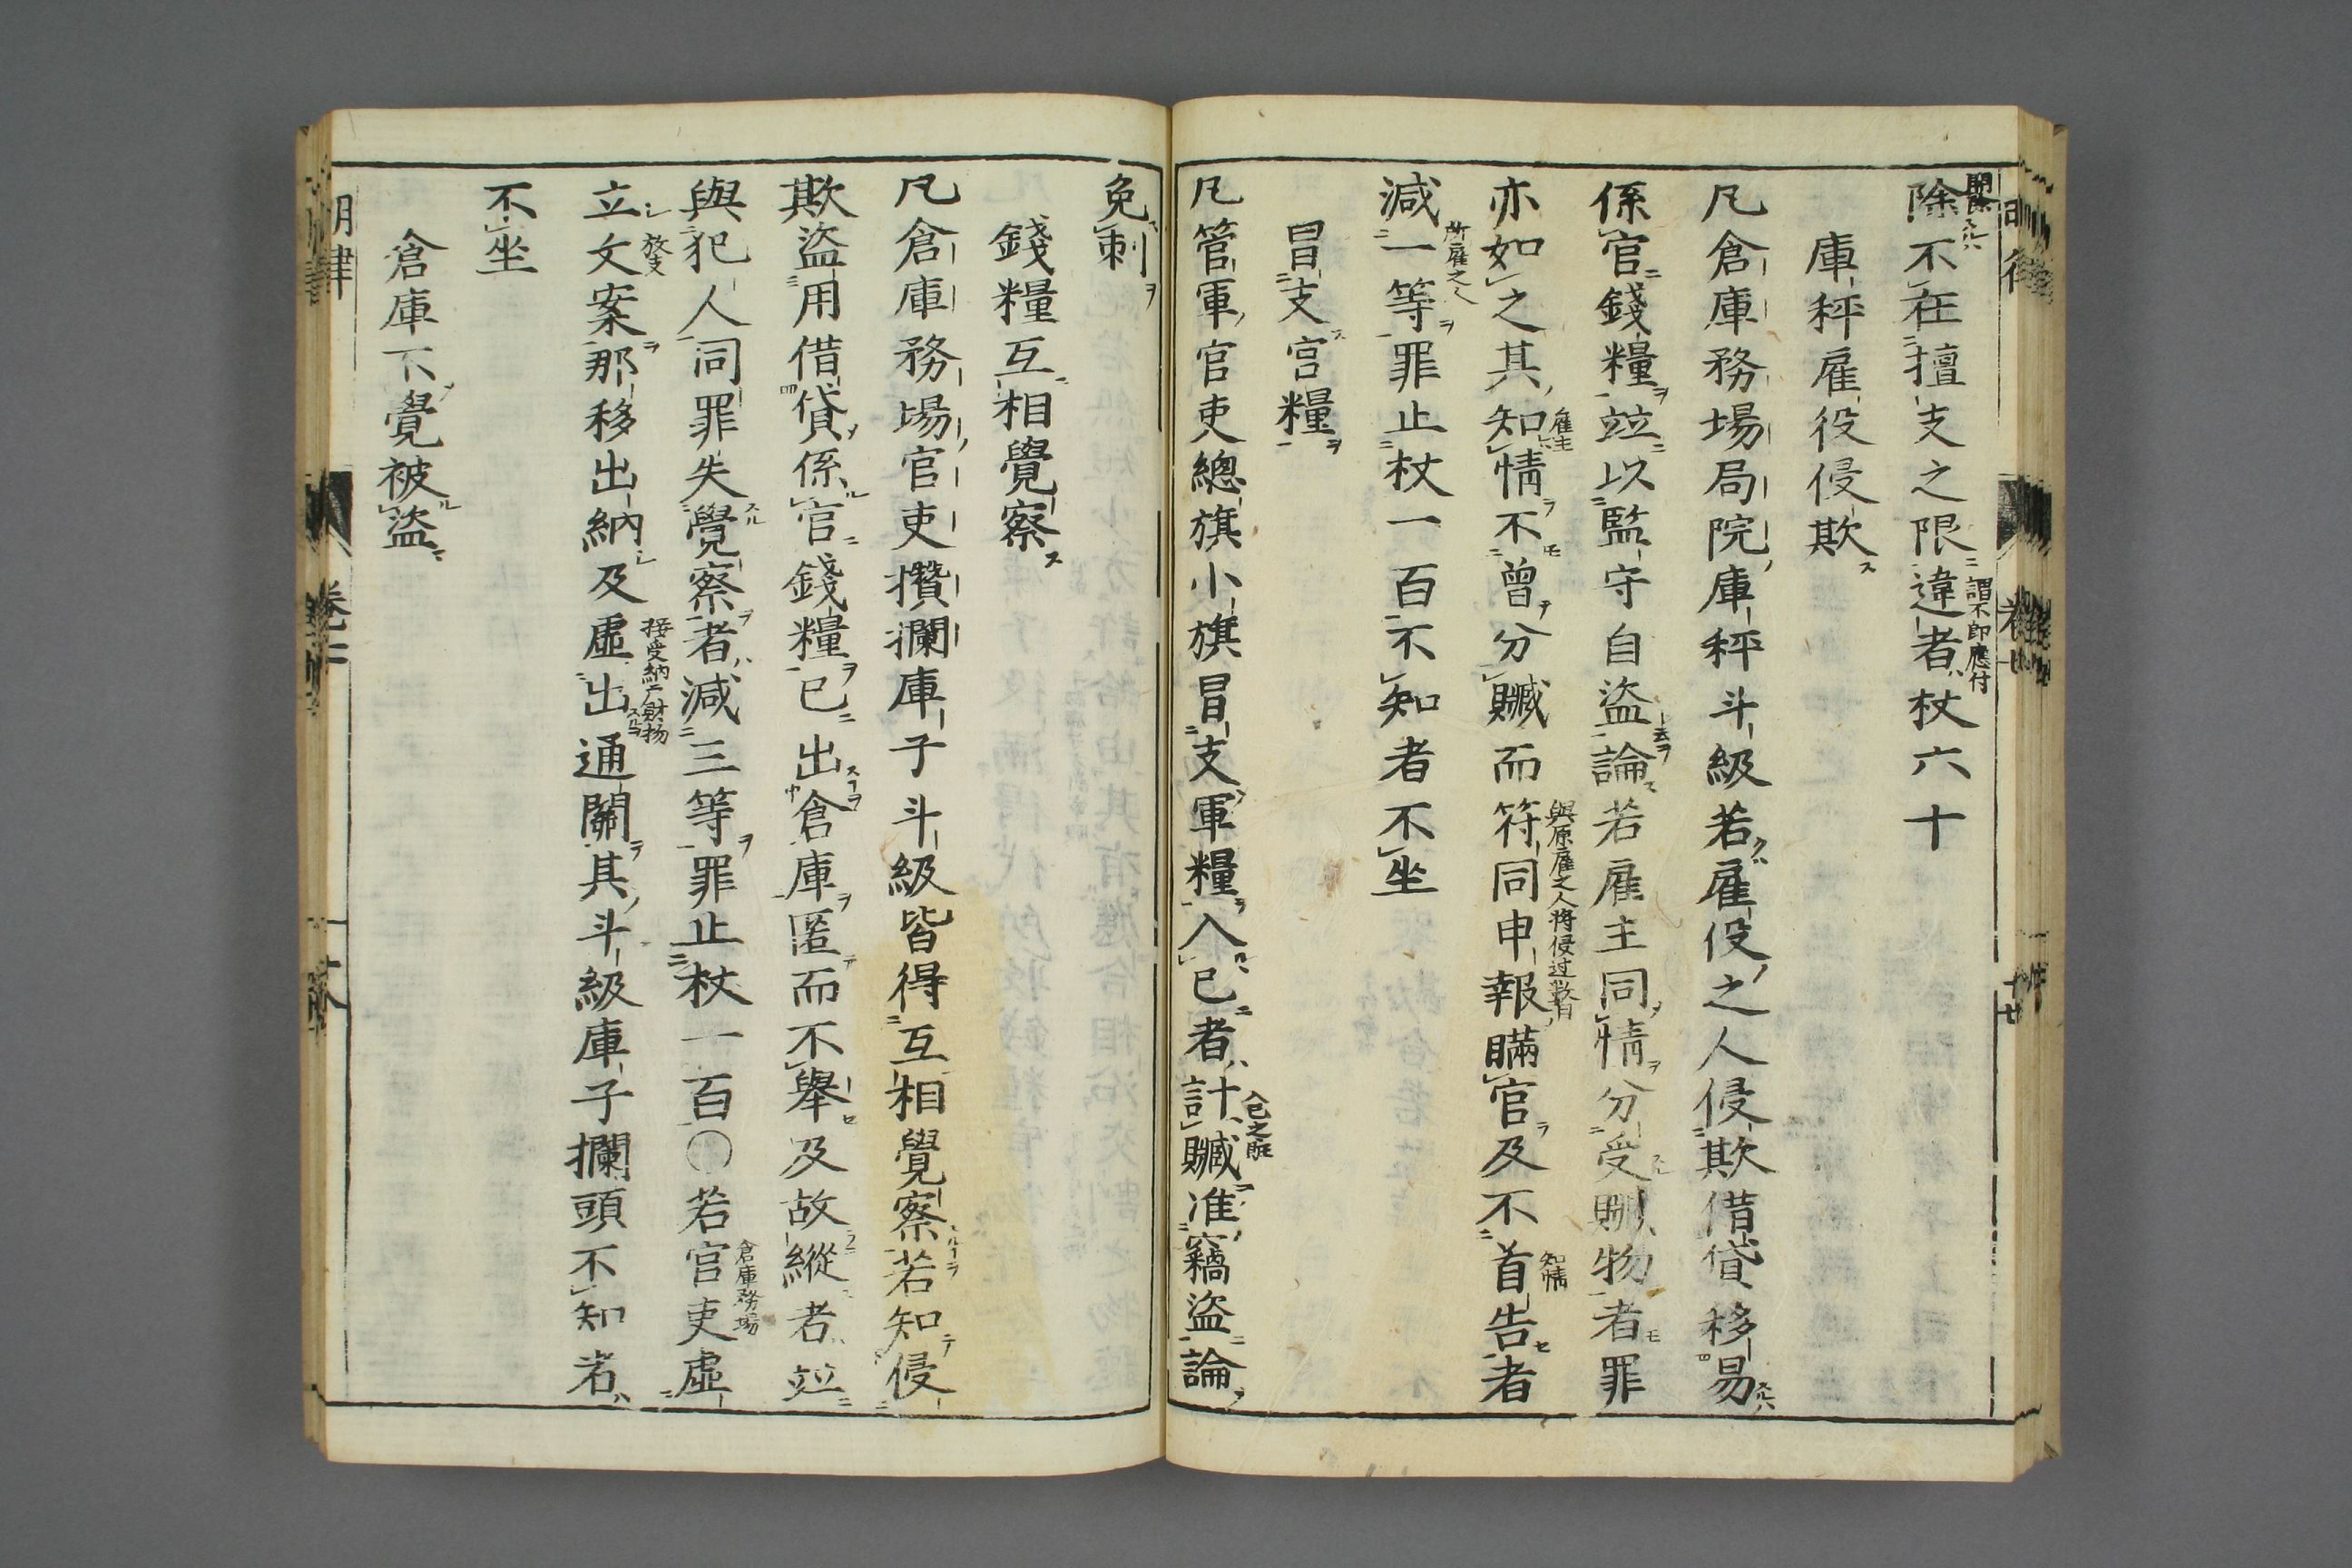 除不在擅支之限違者杖六十
謂不即應付
庫秤雇役侵欺
凡倉庫務場局院庫秤斗級若雇役之人侵欺借貸移易
係官錢糧竝以監守自盜論若雇主同情分受贓物者罪
亦如之其知情不曾分贓而符同申報瞞官及不首告者
雇主
與原雇之人将侵过数目
知情
減一等罪止杖一百不知者不坐
所雇之人
冒支官糧
凡管軍官吏總旗小旗冒支軍糧入已者計贓准竊盜論
入已之賍
免刺
錢糧互相覺察
凡倉庫務場官吏攢攔庫子斗級皆得互相覺察若知侵
欺盜用借貸係官錢糧已出倉庫匿而不舉及故縱者竝
與犯人同罪失覺察者減三等罪止杖一百〇若官吏虛
倉庫務場
立文案那移出納及虛出通關其斗級庫子攔頭不知者
放支
接受納戸財物
不坐
倉庫不覺被盜
明律
卷二